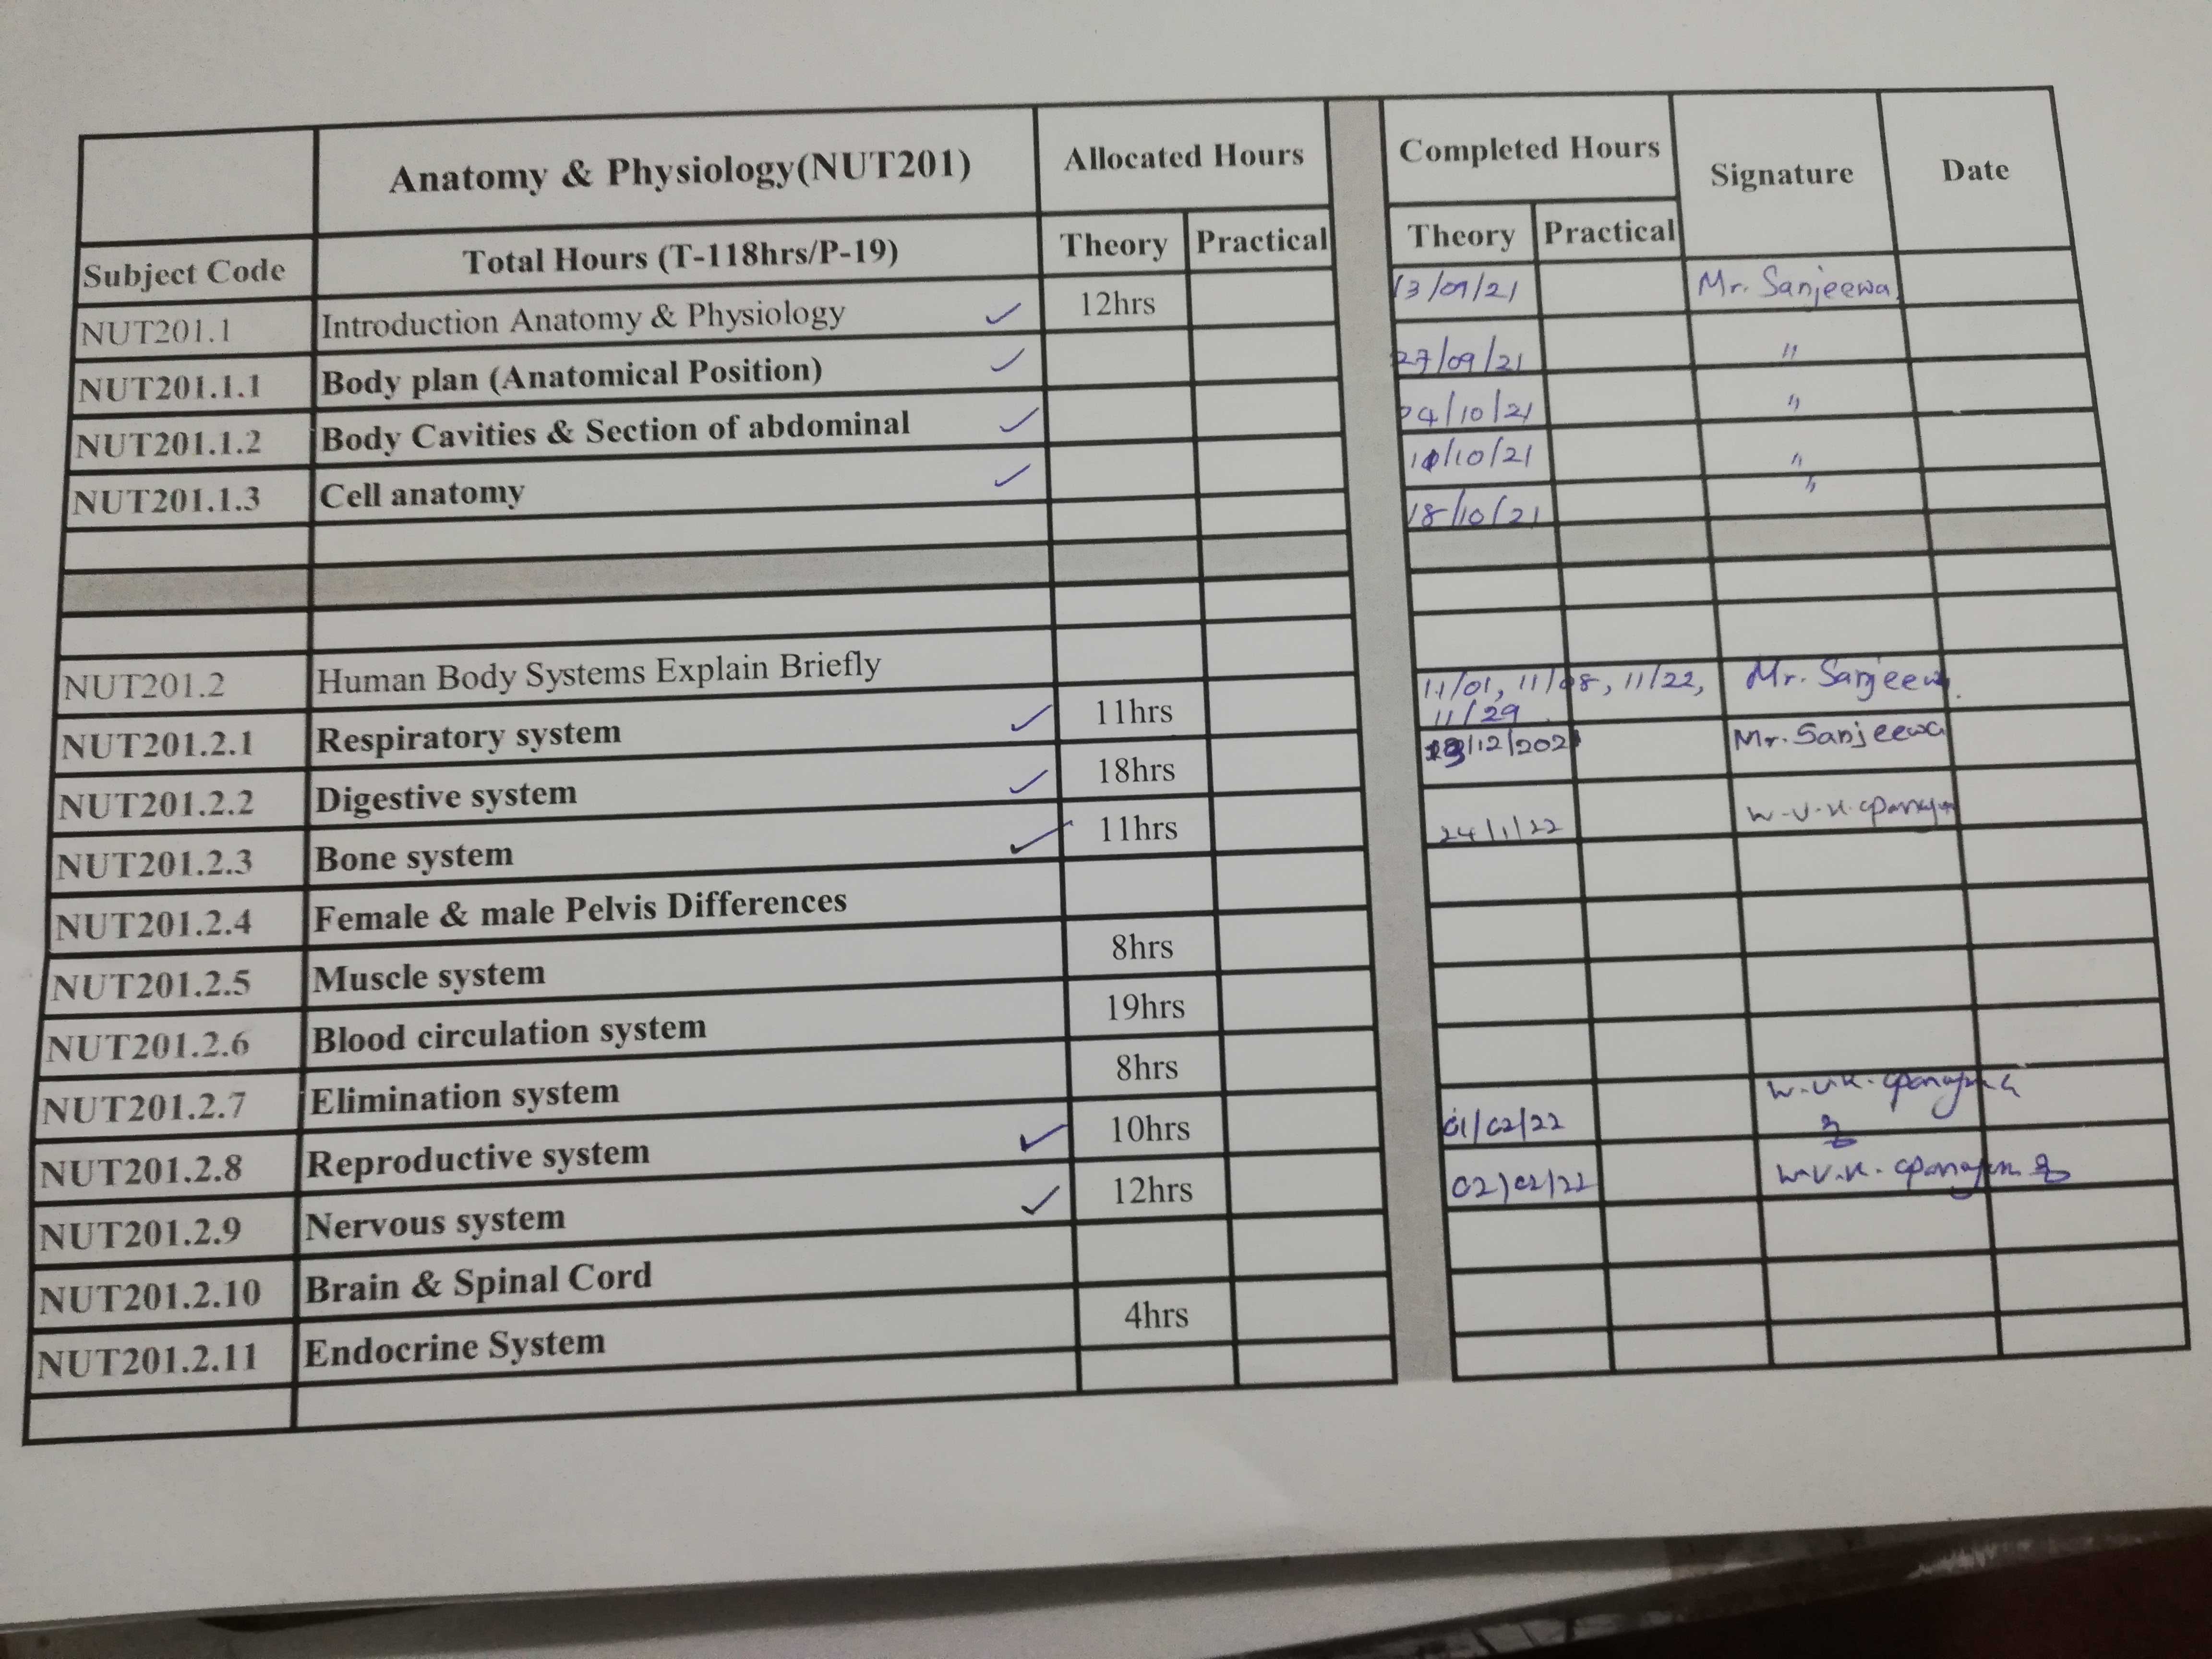 Anatomy & Physiology(NUT201) Allocated Hours Completed Hours Signature Date
Subject Code Total Hours (T-118hrs/P-19) Theory Practical Theory Practical
NUT201.1 Introduction Anatomy & Physiology ✓ 12hrs 13/09/21 Mr. Sanjeewa
NUT201.1.1 Body plan (Anatomical Position) ✓ 27/09/21 "
NUT201.1.2 Body Cavities & Section of abdominal ✓ 04/10/21 "
NUT201.1.3 Cell anatomy ✓ /10/21 "
18/10/21 "
NUT201.2 Human Body Systems Explain Briefly
NUT201.2.1 Respiratory system ✓ 11hrs 11/01, 11/08, 11/22, Mr. Sanjeewa
11/29
NUT201.2.2 Digestive system ✓ 18hrs /12/2021 Mr. Sanjeewa
NUT201.2.3 Bone system ✓ 11hrs 24/1/22 W.U.K.
NUT201.2.4 Female & male Pelvis Differences
NUT201.2.5 Muscle system 8hrs
NUT201.2.6 Blood circulation system 19hrs
NUT201.2.7 Elimination system 8hrs
NUT201.2.8 Reproductive system ✓ 10hrs 01/02/22 W.U.K.
NUT201.2.9 Nervous system ✓ 12hrs 02/02/22 W.U.K.
NUT201.2.10 Brain & Spinal Cord
NUT201.2.11 Endocrine System 4hrs